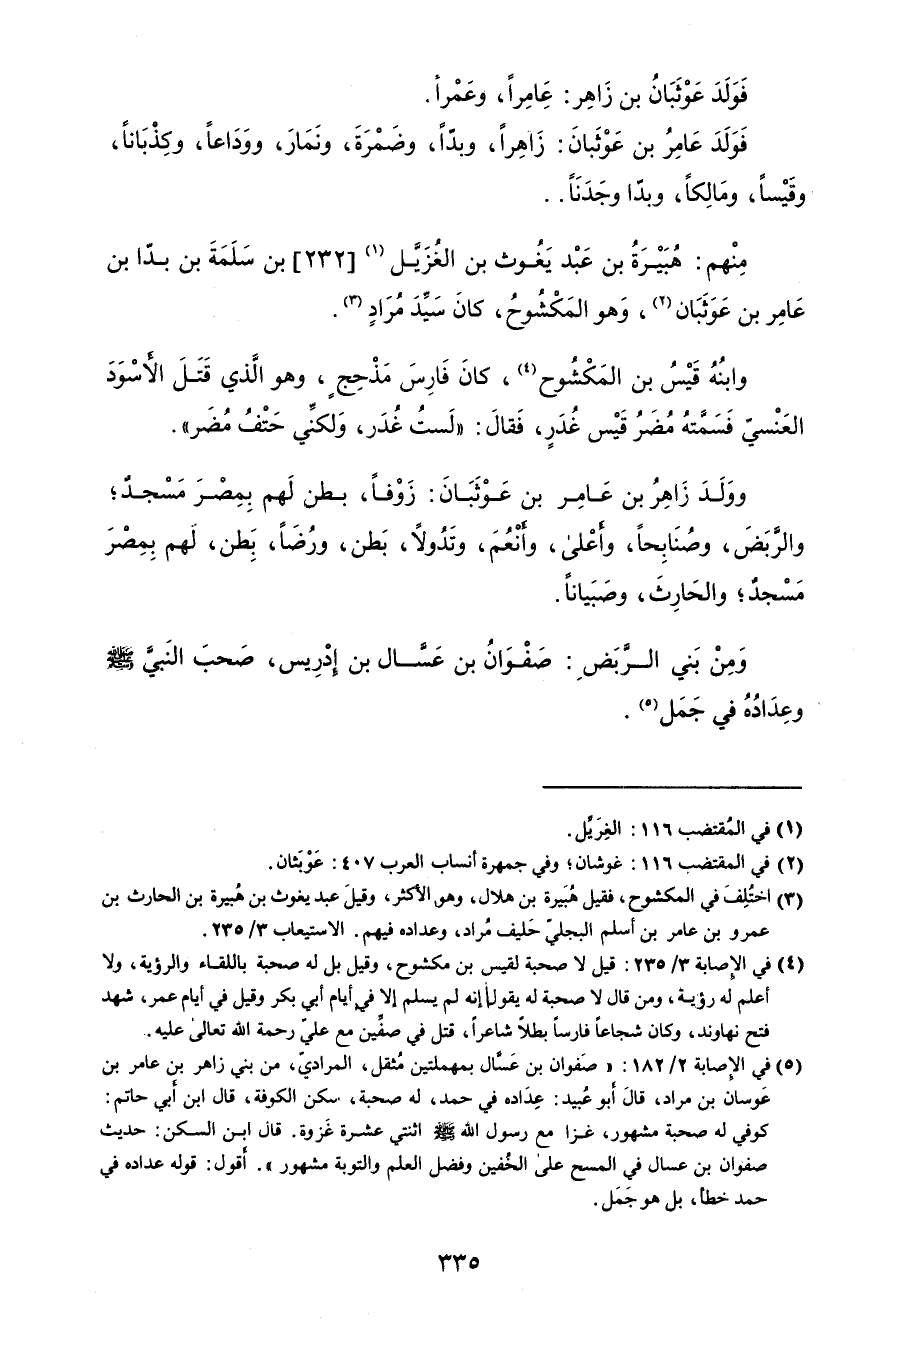 فَوَلَدَ عَوْثَبَانُ بن زَاهِر: عَامِراً، وعَمْراً.
فَوَلَدَ عَامِرُ بن عَوْثَبانَ: زَاهِراً، وبدّاً، وضَمْرَةَ، ونَمَارَ، ووَدَاعاً، وكِذْبَاناً،
وقَيْساً، ومَالِكاً، وبدّا وجَدَنَاً. .
مِنْهم: هُبَيْرَةُ بن عَبْد يَغُوث بن الغُزَيَّل (١) [٢٣٢] بن سَلَمَةَ بن بدّا بن
عَامِر بن عَوَثَبَان (٢)، وَهو المَكْشُوحُ، كانَ سَيِّدَ مُرَادٍ (٣).
وابنُهُ قَيْسُ بن المَكْشُوح (٤)، كانَ فَارِسَ مَذْحِجٍ، وهو الَّذي قَتَلَ الأَسْوَدَ
العَنْسيّ فَسَمَّتهُ مُضَرُ قَيْس غُدَرٍ، فَقالَ: «لَستُ غُدَر، وَلكنِّي حَتْفُ مُضَر».
ووَلَدَ زَاهِرُ بن عَامِر بن عَوْثَبَانَ: زَوْفاً، بطن لَهم بِمِصْرَ مَسْجدٌ؛
والرَّبَضَ، وصُنَابِحاً، وأَعْلىٰ، وأَنْعُمَ، وتَدُولاً، بَطن، ورُضَاً، بَطن، لَهم بِمِصْرَ
مَسْجدٌ؛ والحَارِثَ، وصَبَياناً.
وَمِنْ بَني الرَّبَضِ: صَفْوَانُ بن عَسَّال بن إدْرِيس، صَحبَ النَبيَّ ﷺ
وعِدَادُهُ في جَمَل (٥).
(١) في المُقتضب ١١٦: الغِزَيَّل.
(٢) في المقتضب ١١٦: غوشان؛ وفي جمهرة أنساب العرب ٤٠٧: عَوْبَثان.
(٣) اختُلِفَ في المكشوح، فقيل هُبَيرة بن هلال، وهو الأكثر، وقيلَ عبد يغوث بن هُبيرة بن الحارث بن
عمرو بن عامر بن أسلم البجليّ حَليف مُراد، وعداده فيهم. الاستيعاب ٣/ ٢٣٥.
(٤) في الإصابة ٣/ ٢٣٥: قيل لا صحبة لقيس بن مكشوح، وقيل بل له صحبة باللقاء والرؤية، ولا
أعلم له رؤية، ومن قال لا صحبة له يقول إنه لم يسلم إلا في أيام أبي بكر وقيل في أيام عمر، شهد
فتح نهاوند، وكان شجاعاً فارساً بطلاً شاعراً، قتل في صفِّين مع عليّ رحمة الله تعالىٰ عليه.
(٥) في الإصابة ٢/ ١٨٢: « صَفوان بن عَسَّال بمهملتين مُثقل، المراديّ، من بني زاهر بن عامر بن
عَوسان بن مراد، قالَ أبو عُبيد: عِدَاده في حمد، له صحبة، سكن الكوفة، قال ابن أبي حاتم:
كوفي له صحبة مشهور، غزا مع رسول الله ﷺ اثنتي عشرة غزوة. قال ابن السكن: حديث
صفوان بن عسال في المسح علىٰ الخُفين وفضل العلم والتوبة مشهور ». أقول: قوله عداده في
حمد خطأ، بل هو جَمَل.
٣٣٥